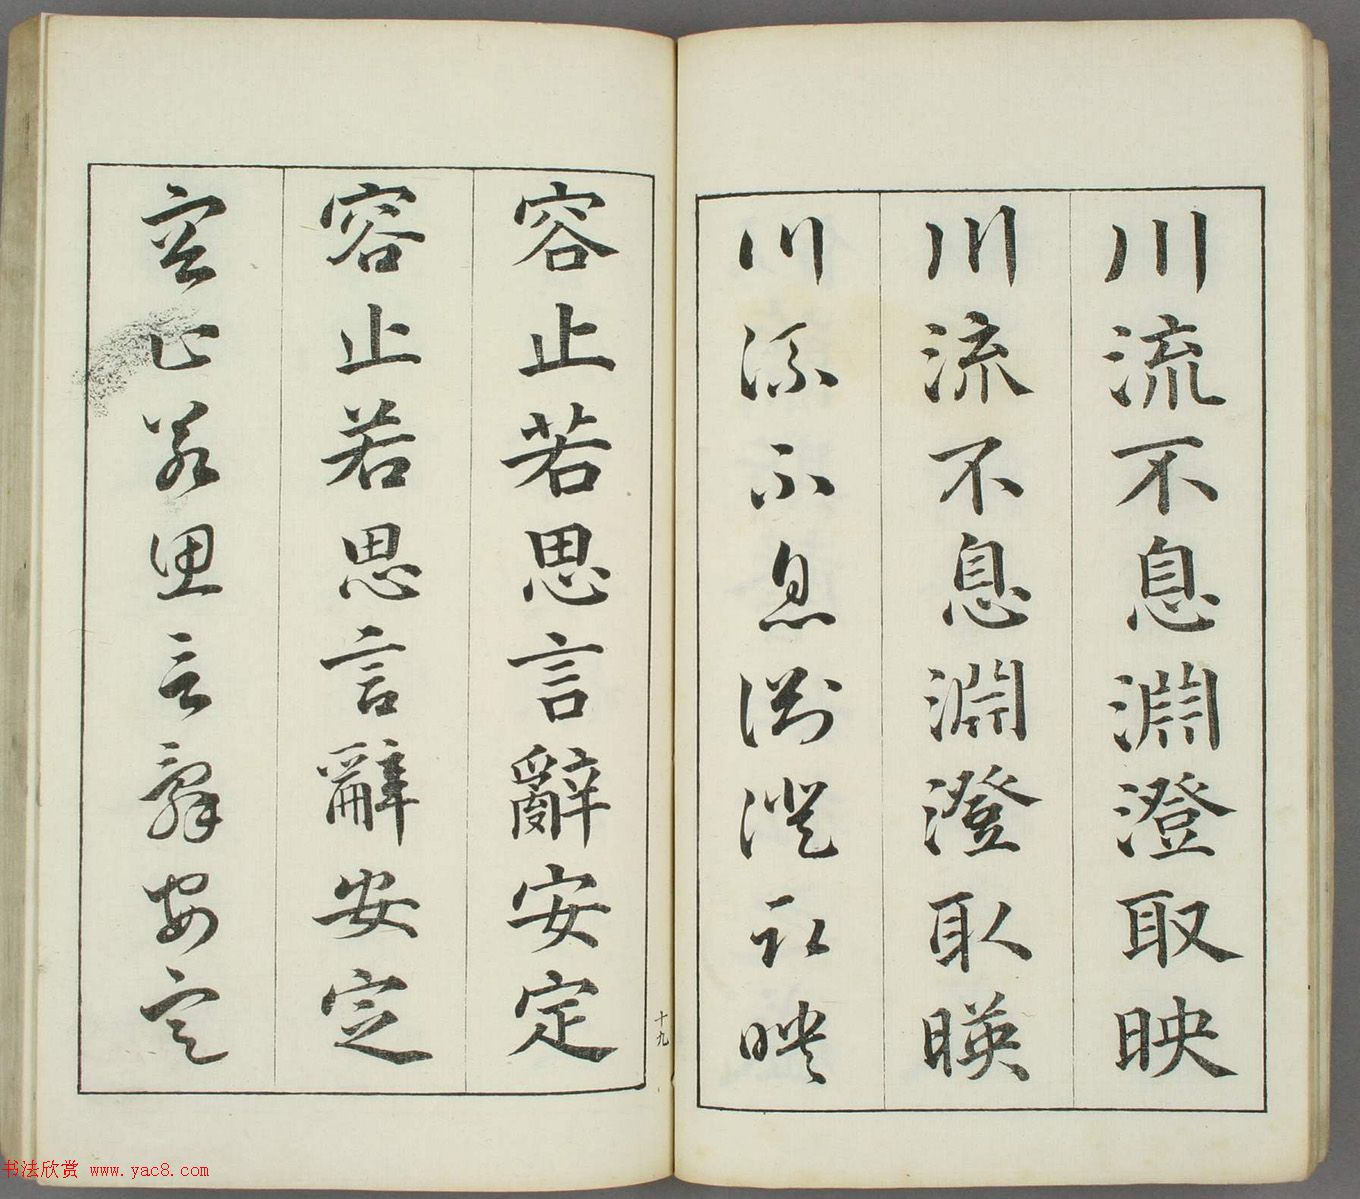 川流不息淵澄取映
川流不息淵澄取暎
川流不息淵澄取映
容止若思言辭安定
容止若思言辭安定
容止若思言辭安定
十九
书法欣赏 www.yac8.com